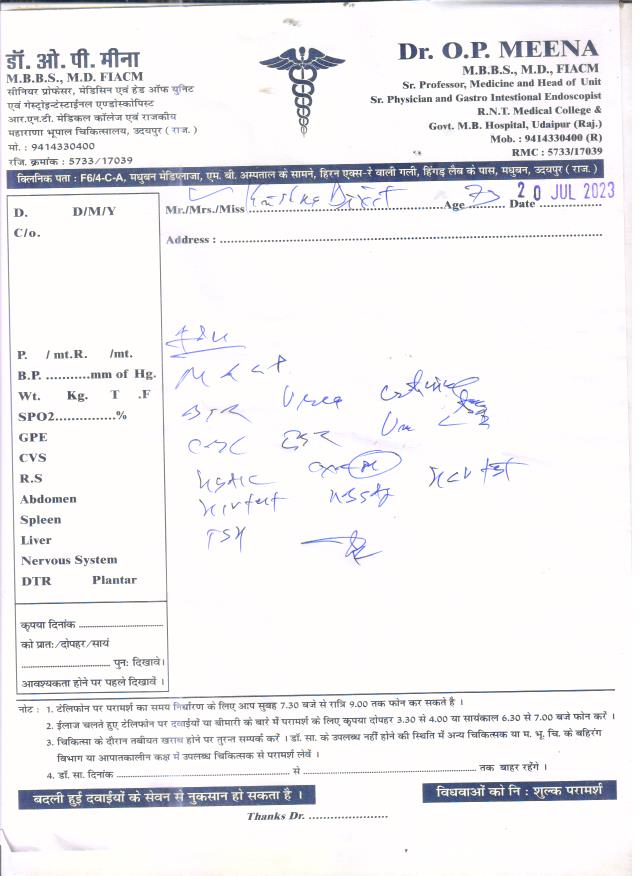 डॉ. ओ. पी. मीना
M.B.B.S., M.D. FIACM
सीनियर प्रोफेसर, मेडिसिन एवं हेड ऑफ युनिट
एवं गेस्ट्रोइन्टेस्टाईनल एण्डोस्कोपिस्ट
आर.एन.टी. मेडिकल कॉलेज एवं राजकीय
महाराणा भूपाल चिकित्सालय, उदयपुर ( राज. )
मो. : 9414330400
रजि. क्रमांक : 5733/17039
Dr. O.P. MEENA
M.B.B.S., M.D., FIACM
Sr. Professor, Medicine and Head of Unit
Sr. Physician and Gastro Intestional Endoscopist
R.N.T. Medical College &
Govt. M.B. Hospital, Udaipur (Raj.)
Mob. : 9414330400 (R)
RMC : 5733/17039
क्लिनिक पता : F6/4-C-A, मधुबन मेडिप्लाजा, एम. बी. अस्पताल के सामने, हिरन एक्स-रे वाली गली, हिंगड़ लैब के पास, मधुबन, उदयपुर ( राज. )
D. D/M/Y
C/o.
Mr./Mrs./Miss Age Date 20 JUL 2023
Address :
P. / mt.R. /mt.
B.P. ...........mm of Hg.
Wt. Kg. T .F
SPO2...............%
GPE
CVS
R.S
Abdomen
Spleen
Liver
Nervous System
DTR Plantar
Urea
CBC ESR
HIV test HBsAg HCV test
TSH
कृपया दिनांक
को प्रातः/दोपहर/सायं
पुनः दिखावे।
आवश्यकता होने पर पहले दिखावें ।
नोट : 1. टेलिफोन पर परामर्श का समय निर्धारण के लिए आप सुबह 7.30 बजे से रात्रि 9.00 तक फोन कर सकते है ।
2. ईलाज चलते हुए टेलिफोन पर दवाईयों या बीमारी के बारे में परामर्श के लिए कृपया दोपहर 3.30 से 4.00 या सायंकाल 6.30 से 7.00 बजे फोन करें ।
3. चिकित्सा के दौरान तबीयत खराब होने पर तुरन्त सम्पर्क करें । डॉ. सा. के उपलब्ध नहीं होने की स्थिति में अन्य चिकित्सक या म. भू. चि. के बहिरंग
विभाग या आपातकालीन कक्ष में उपलब्ध चिकित्सक से परामर्श लेवें ।
4. डॉ. सा. दिनांक से तक बाहर रहेंगे ।
बदली हुई दवाईयों के सेवन से नुकसान हो सकता है ।
विधवाओं को नि : शुल्क परामर्श
Thanks Dr. ......................